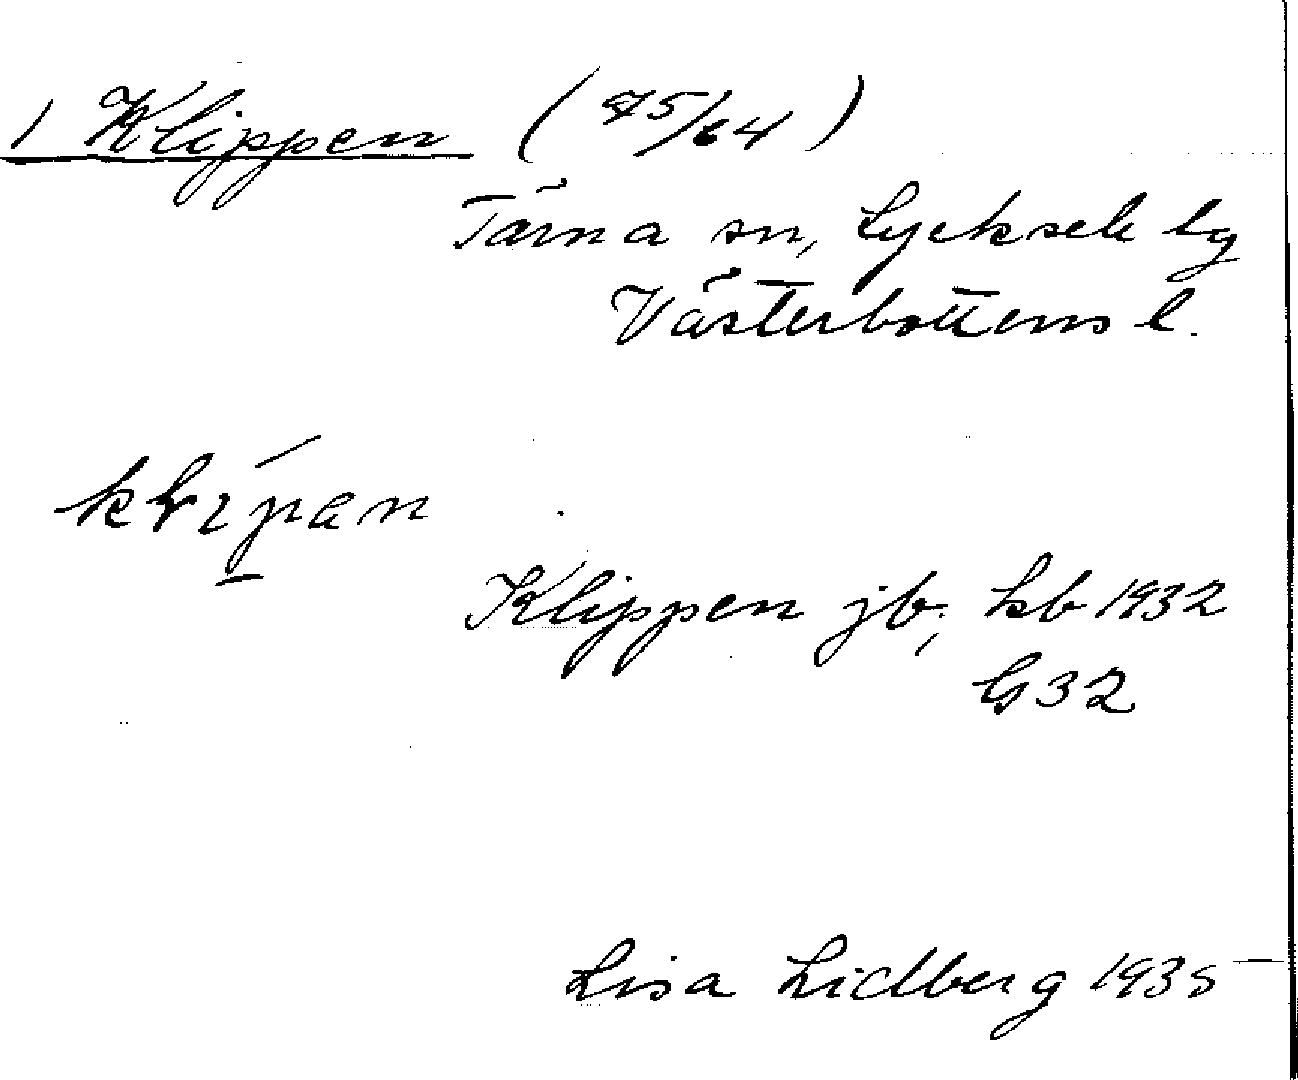 1 Klippen (75/64)
Tärna sn, Lycksele lg
Västerbottens l.
klɪ́pan
Klippen jb; kb 1932
G32
Lisa Lidberg 1935